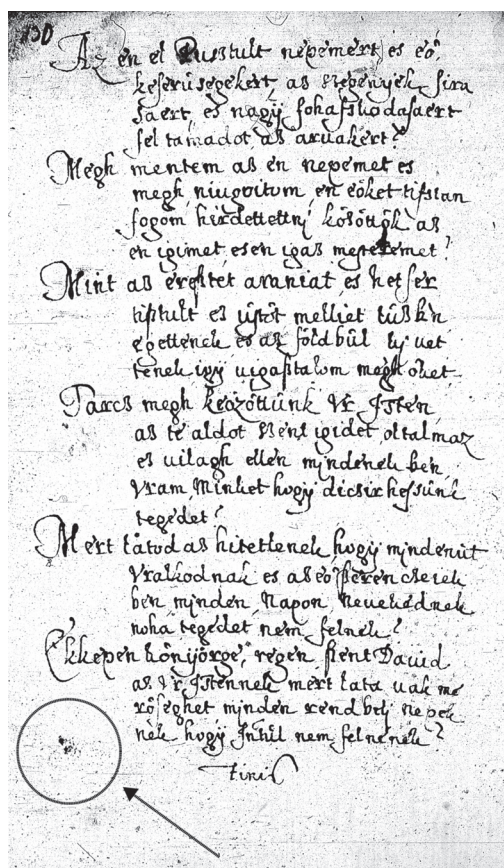 130
Az én el pusstult nepemért és eő
keserüsegekért, as szegenyek sira
saert, és nagÿ sohaſskodasaert
fel tamadot, as aruakért?
Megh mentem as én nepemet es
megh niugoitom, en eöket tisstan
fogom hirdettettnj kösöttök as
en igimet, es en igas
Mint as eresstet araniat, es hetser
tisstult es üstöt melliet tüsbn
egettenek és as földbül
tenek igÿ uigasstalom megh öket
Tarcs megh keözöttünk Vr Jsten
as te aldot szent igidet, oltalmaz
es uilagh ellen mjndenek ben
Vram, Minket hogÿ dicsirhessünk
tegedet?
Mert látod as hitetlenek, hogÿ mjndenüt
Vralkodnak es as eö szerencsejek
ben mjnden Napon, neuekednek
noha tegedet nem felnek?
Ekkepen könijörge, regen szent Dauid
as Vr Jstennek mert lata uak me
röseghet minden rendbelj nepek
nek hogÿ Jntül nem felnenek?
finis